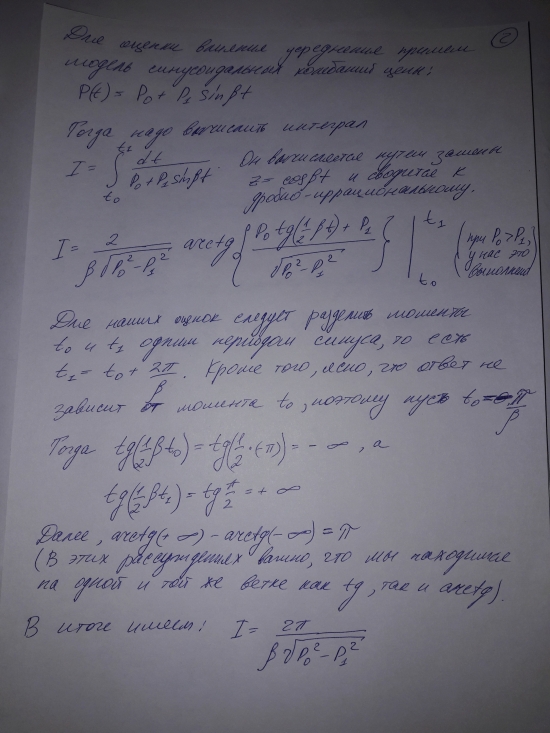 2
Для оценки влияния усреднения примем
модель синусоидальных колебаний цены:
P(t) = P₀ + P₁ sin βt
Тогда надо вычислить интеграл
I = ∫_{t₀}^{t₁} dt / (P₀ + P₁ sin βt). Он вычисляется путем замены
z = cos βt и сводится к
дробно-иррациональному.
I = 2 / (β √(P₀² − P₁²)) arctg { (P₀ tg(½ βt) + P₁) / √(P₀² − P₁²) } |_{t₀}^{t₁} (при P₀ > P₁,
у нас это
выполнено)
Для наших оценок следует разделить моменты
t₀ и t₁ одним периодом синуса, то есть
t₁ = t₀ + 2π/β. Кроме того, ясно, что ответ не
зависит от момента t₀, поэтому пусть t₀ = −π/β
Тогда tg(½ βt₀) = tg(½ · (−π)) = − ∞, а
tg(½ βt₁) = tg π/2 = + ∞
Далее, arctg(+ ∞) − arctg(− ∞) = π
(В этих рассуждениях важно, что мы находимся
на одной и той же ветке как tg, так и arctg).
В итоге имеем: I = 2π / (β √(P₀² − P₁²))